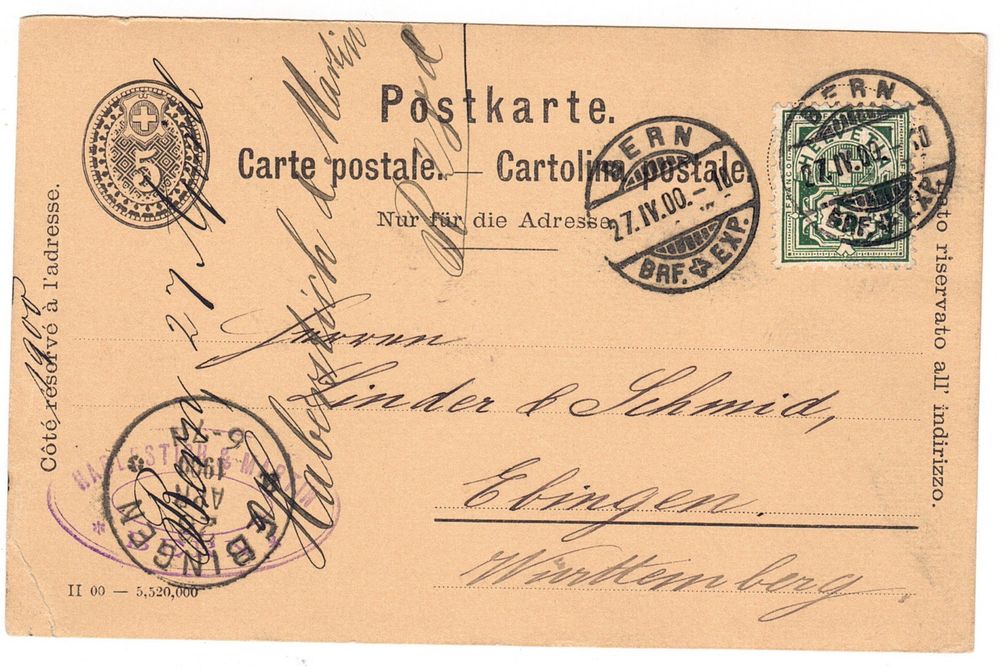 Postkarte.
Carte postale. — Cartolina postale.
Nur für die Adresse.
Côté réservé à l'adresse.
Lato riservato all' indirizzo.
5
HELVETIA
BERN
27.IV.00.-10
BRF. EXP.
BERN
27.IV.00.-10
BRF. EXP.
Herren
Linder & Schmid,
Ebingen.
Württemberg
Bern 27 April
1900
Haberstich & Martin
HABERSTICH & MARTIN
EBINGEN
APR
1900
6-7N
II 00 — 5,520,000